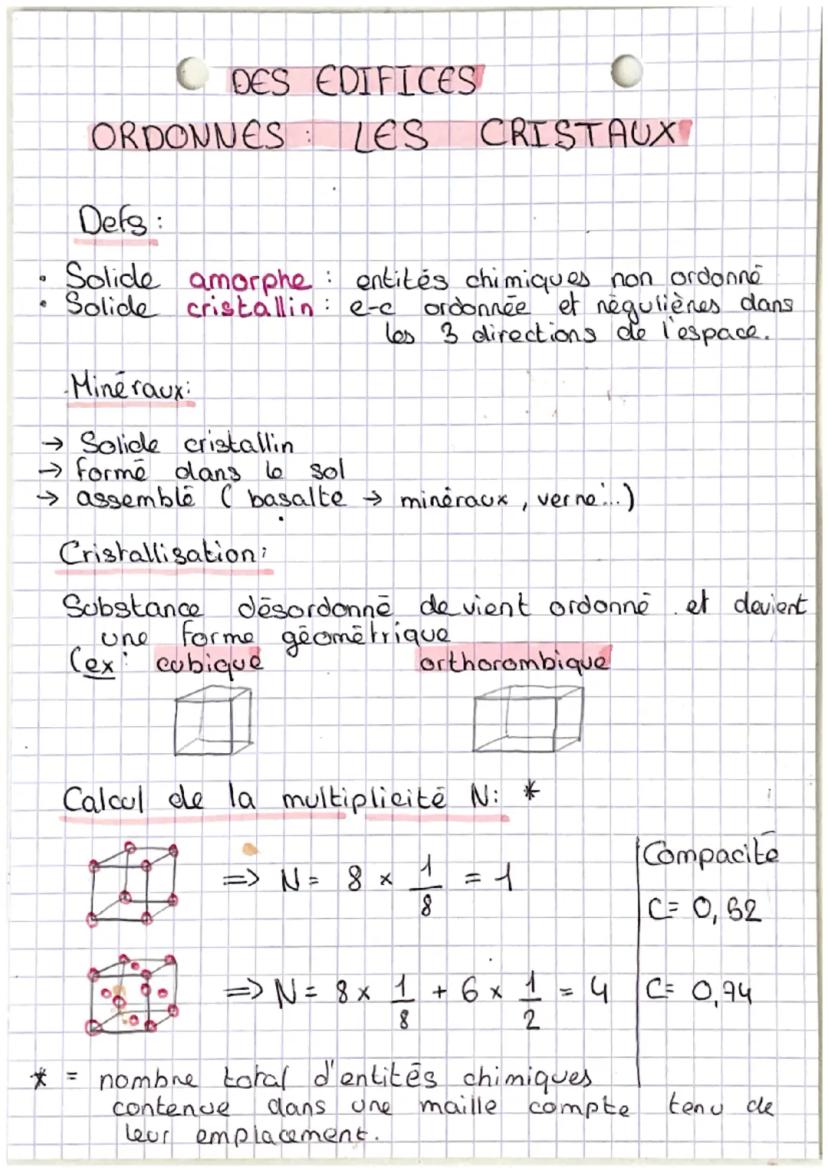 DES EDIFICES
ORDONNES : LES CRISTAUX
Defs :
• Solide amorphe : entités chimiques non ordonné
• Solide cristallin : e-c ordonnée et régulières dans
les 3 directions de l'espace.
Minéraux :
→ Solide cristallin
→ formé dans le sol
→ assemblé ( basalte → minéraux , verre ...)
Cristallisation :
Substance désordonné devient ordonné et devient
une forme géométrique
(ex : cubique orthorombique
Calcul de la multiplicité N : *
Compacité
=> N = 8 × 1/8 = 1
C = 0,52
=> N = 8 × 1/8 + 6 × 1/2 = 4
C = 0,74
* = nombre total d'entités chimiques
contenue dans une maille compte tenu de
leur emplacement.